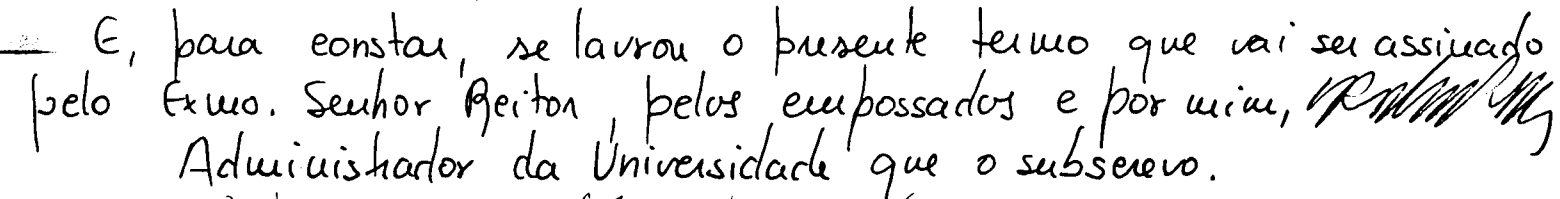 — E, para constar, se lavrou o presente termo que vai ser assinado
pelo Exmo. Senhor Reitor, pelos empossados e por mim,
Administrador da Universidade que o subscrevo.